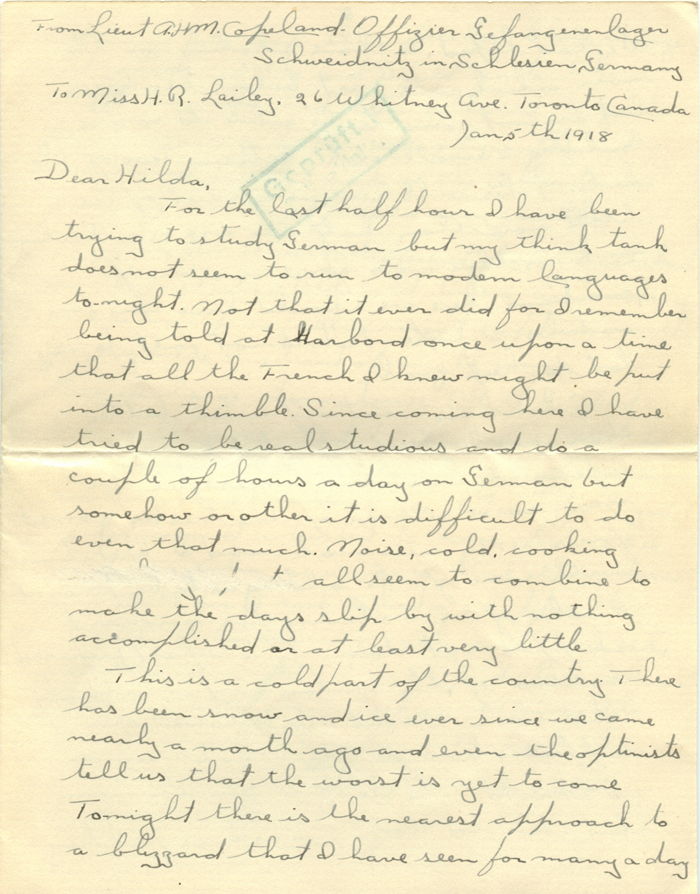 From Lieut A.H.M. Copeland - Offizier Gefangenenlager
Schweidnitz in Schlesien, Germany
To Miss H. R. Lailey. 26 Whitney Ave. Toronto Canada
Jan 5th 1918
Geprüft
Dear Hilda,
For the last half hour I have been
trying to study German but my think tank
does not seem to run to modern languages
to-night. Not that it ever did for I remember
being told at Harbord once upon a time
that all the French I knew might be put
into a thimble. Since coming here I have
tried to be real studious and do a
couple of hours a day on German but
somehow or other it is difficult to do
even that much. Noise, cold, cooking
all seem to combine to
make the days slip by with nothing
accomplished or at least very little
This is a cold part of the country There
has been snow and ice ever since we came
nearly a month ago and even the optimists
tell us that the worst is yet to come
Tomight there is the nearest approach to
a blizzard that I have seen for many a day